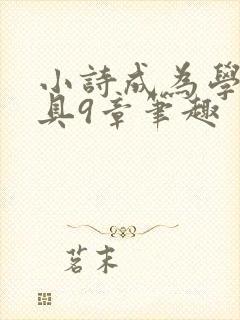 小詩成為學
具9章筆趣
茗末